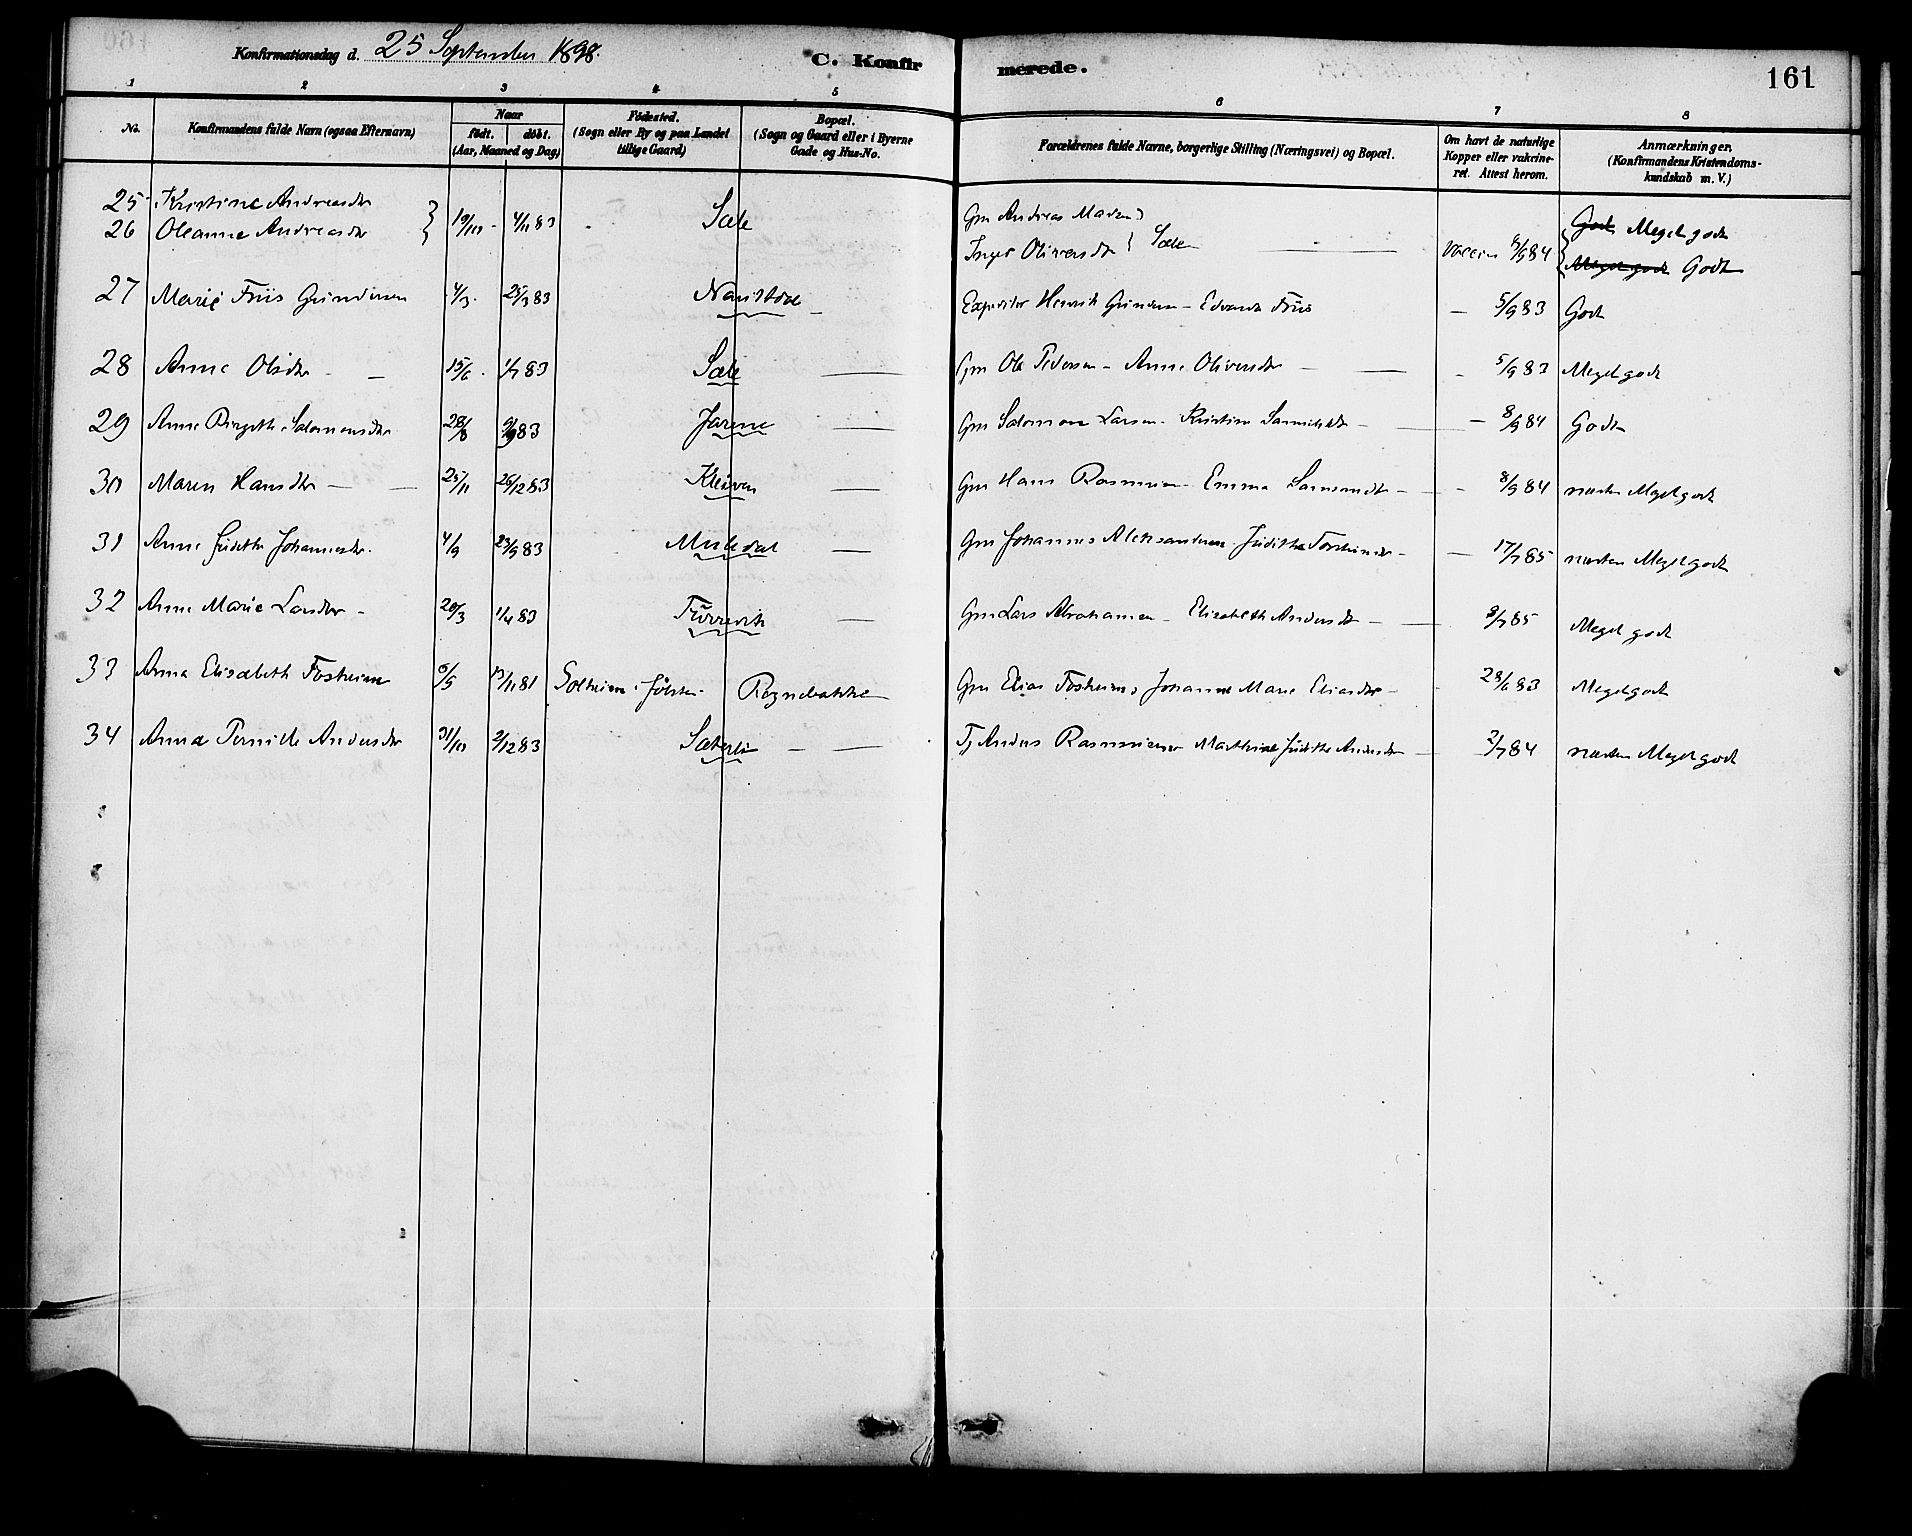 Konfirmationsdag d. 25 September 1898. C. Konfirmerede. 161
1 2 3 4 5 6 7 8
No. Konfirmandens fulde Navn (ogsaa Efternavn) Naar født. døbt. (Aar, Maaned og Dag) Fødested. (Sogn eller By og paa Landet tillige Gaard) Bopæl. (Sogn og Gaard eller i Byerne Gade og Hus-No. Forældrenes fulde Navne, borgerlige Stilling (Næringsvei) og Bopæl. Om havt de naturlige Kopper eller vakcineret. Attest herom. Anmærkninger. (Konfirmandens Kristendomskundskab m. V.)
25 Kristine Andreasdtr } 19/10 - 4/11 83 Sæle Gm Andreas Madsen } Godt Meget godt
26 Oleanne Andreasdtr Inger Oliversdtr } Sæle Vaccin 8/9 84 Meget godt Godt
27 Marie Friis Gundersen 4/3 - 25/3 83 Naustdal Expeditør Henrik Gundersen - Edvarda Friis - 5/9 83 Godt
28 Anne Olsdtr - - 15/6 - 1/7 83 Sæle - Gm Ole Pedersen - Anne Oliversdtr - - 5/9 83 Meget godt
29 Anne Birgitte Salomonsdtr 28/8 9/9 83 - Gm Salomon Larsen - Kristine - - 8/9 84 Godt
30 Maren Hansdtr - - 25/11 26/12 83 Kleiven - Gm Hans Rasmussen - Emma - - 8/9 84 næsten Meget godt
31 Anne Judithe Johannesdtr. 4/9 23/9 83 - Gm Johannes Aleksandersen - Judithe - - 17/7 85 næsten Meget godt
32 Anne Marie Larsdtr - 20/3 1/4 83 - Gm Lars Abrahamsen - Elisabeth Andersdtr - 8/7 85 Meget godt
33 Anna Elisabeth Fosheim 13/11 81 Solheim i Jølster - Rognebakke Gm Elias Fosheim, Johanne Marie Eliasdtr - 28/6 83 Meget godt
34 Anna Pernille Andersdtr 31/10 2/12 83 Sæterli - - Tj Anders Rasmussen Mathine Judithe Andersdtr - 2/7 84 næsten Meget godt